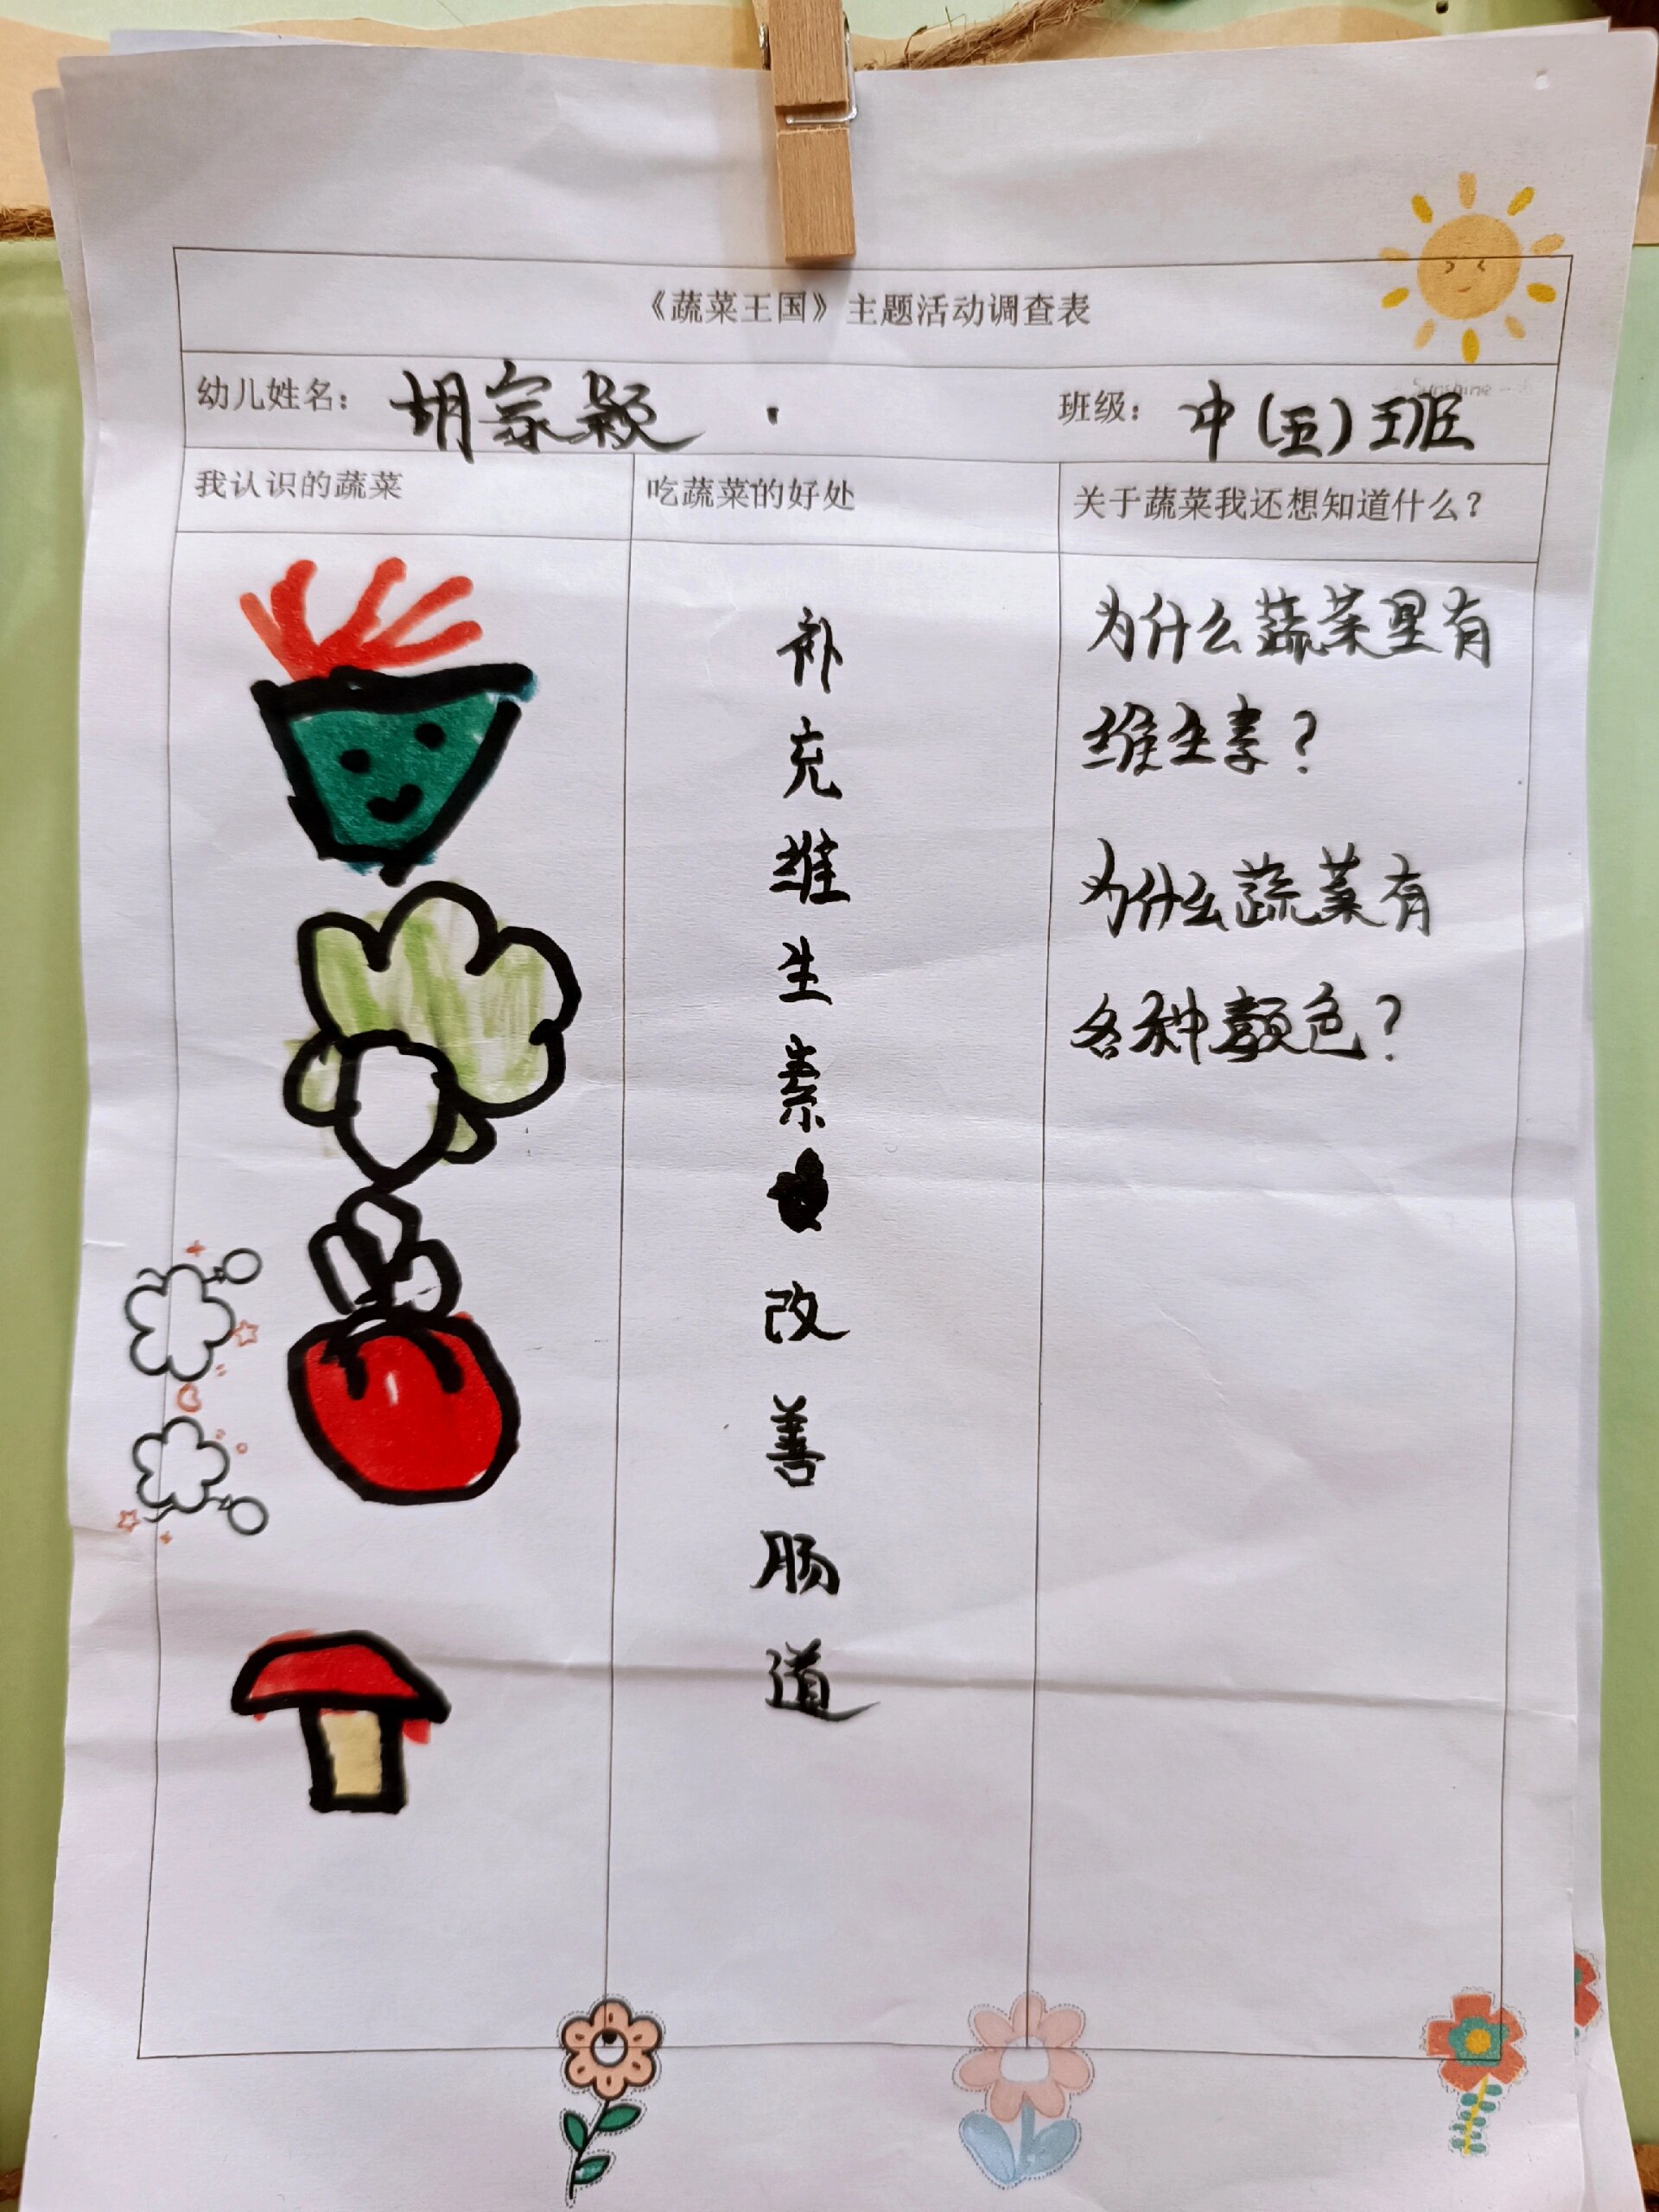 《蔬菜王国》主题活动调查表
幼儿姓名： 胡家颖 班级： 中(五)班
我认识的蔬菜 吃蔬菜的好处 关于蔬菜我还想知道什么？
补
充
维
生
素
改
善
肠
道
为什么蔬菜里有
维生素？
为什么蔬菜有
各种颜色？
Sunshine